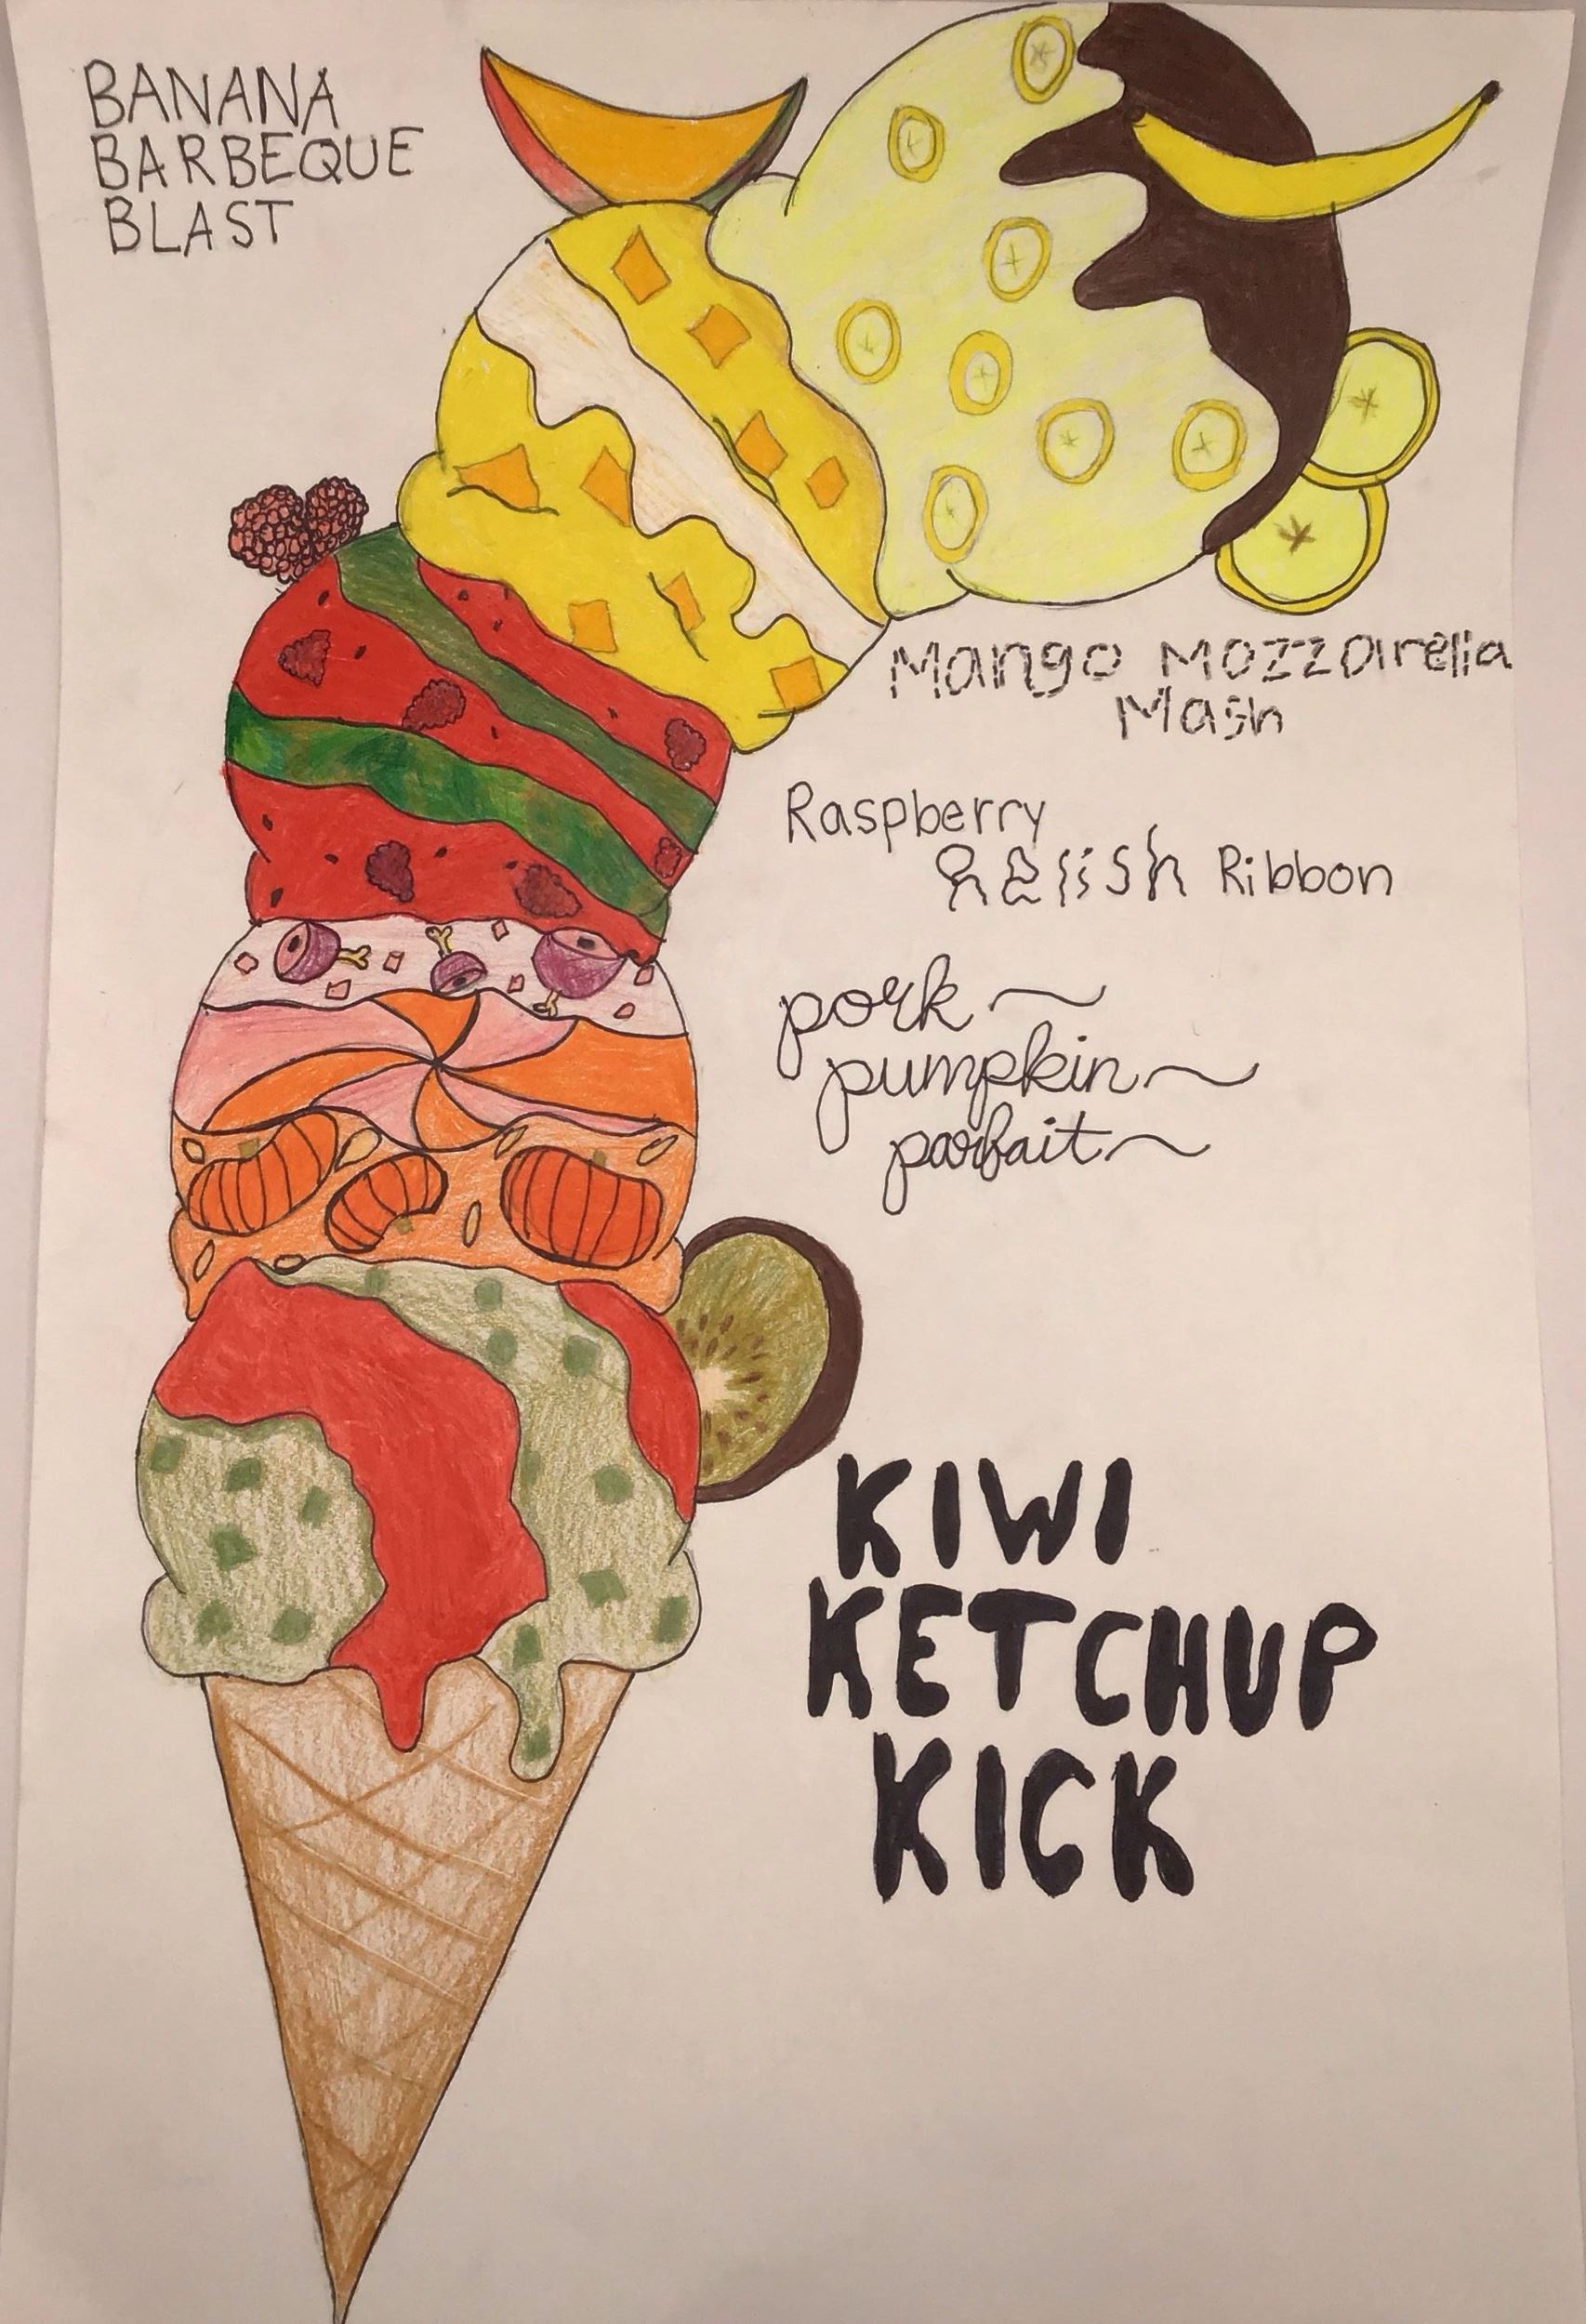 BANANA
BARBEQUE
BLAST
Mango Mozzarella
Mash
Raspberry
Relish Ribbon
pork
pumpkin
parfait
KIWI
KETCHUP
KICK